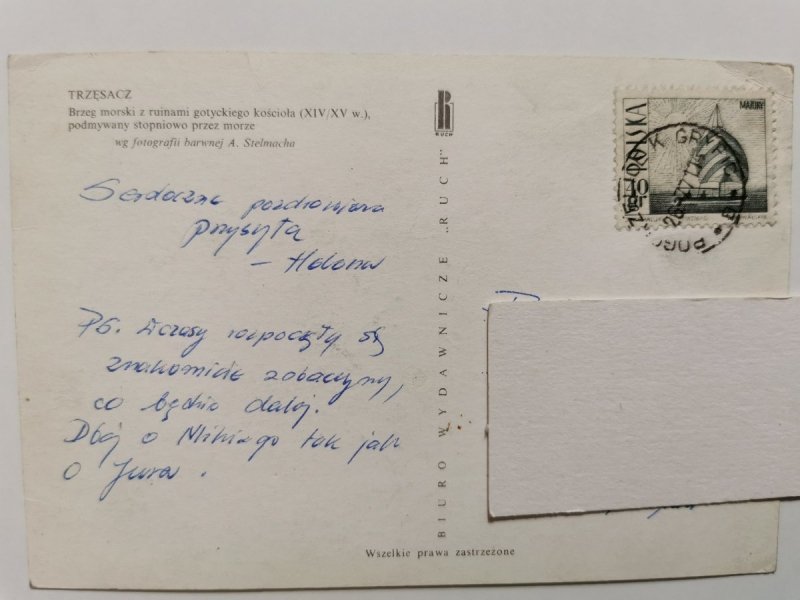 TRZĘSACZ
Brzeg morski z ruinami gotyckiego kościoła (XIV/XV w.),
podmywany stopniowo przez morze
wg fotografii barwnej A. Stelmacha
Serdeczne pozdrowienia
przesyła
— Helena
PS. Wczasy rozpoczęły się
znakomicie zobaczymy,
co będzie dalej.
Dbaj o Michałego tak jak
o Jurka.
BIURO WYDAWNICZE „RUCH"
RUCH
POLSKA
MAZURY
40
GR
Wszelkie prawa zastrzeżone